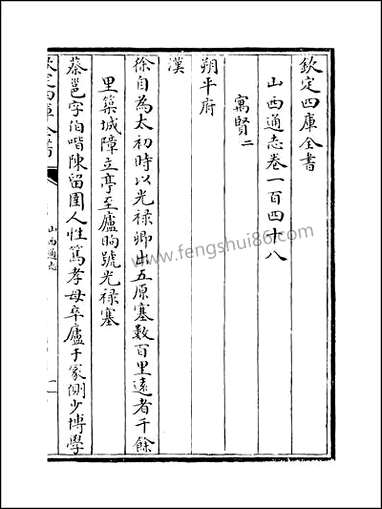 欽定四庫全書
山西通志卷一百四十八
寓賢二
朔平府
漢
徐自為太初時以光祿卿出五原塞數百里遠者千餘
里築城障立亭至廬朐號光祿塞
蔡邕字伯喈陳留圉人性篤孝母卒廬于冢側少博學
欽定四庫全書
山西通志
www.fengshui86.com